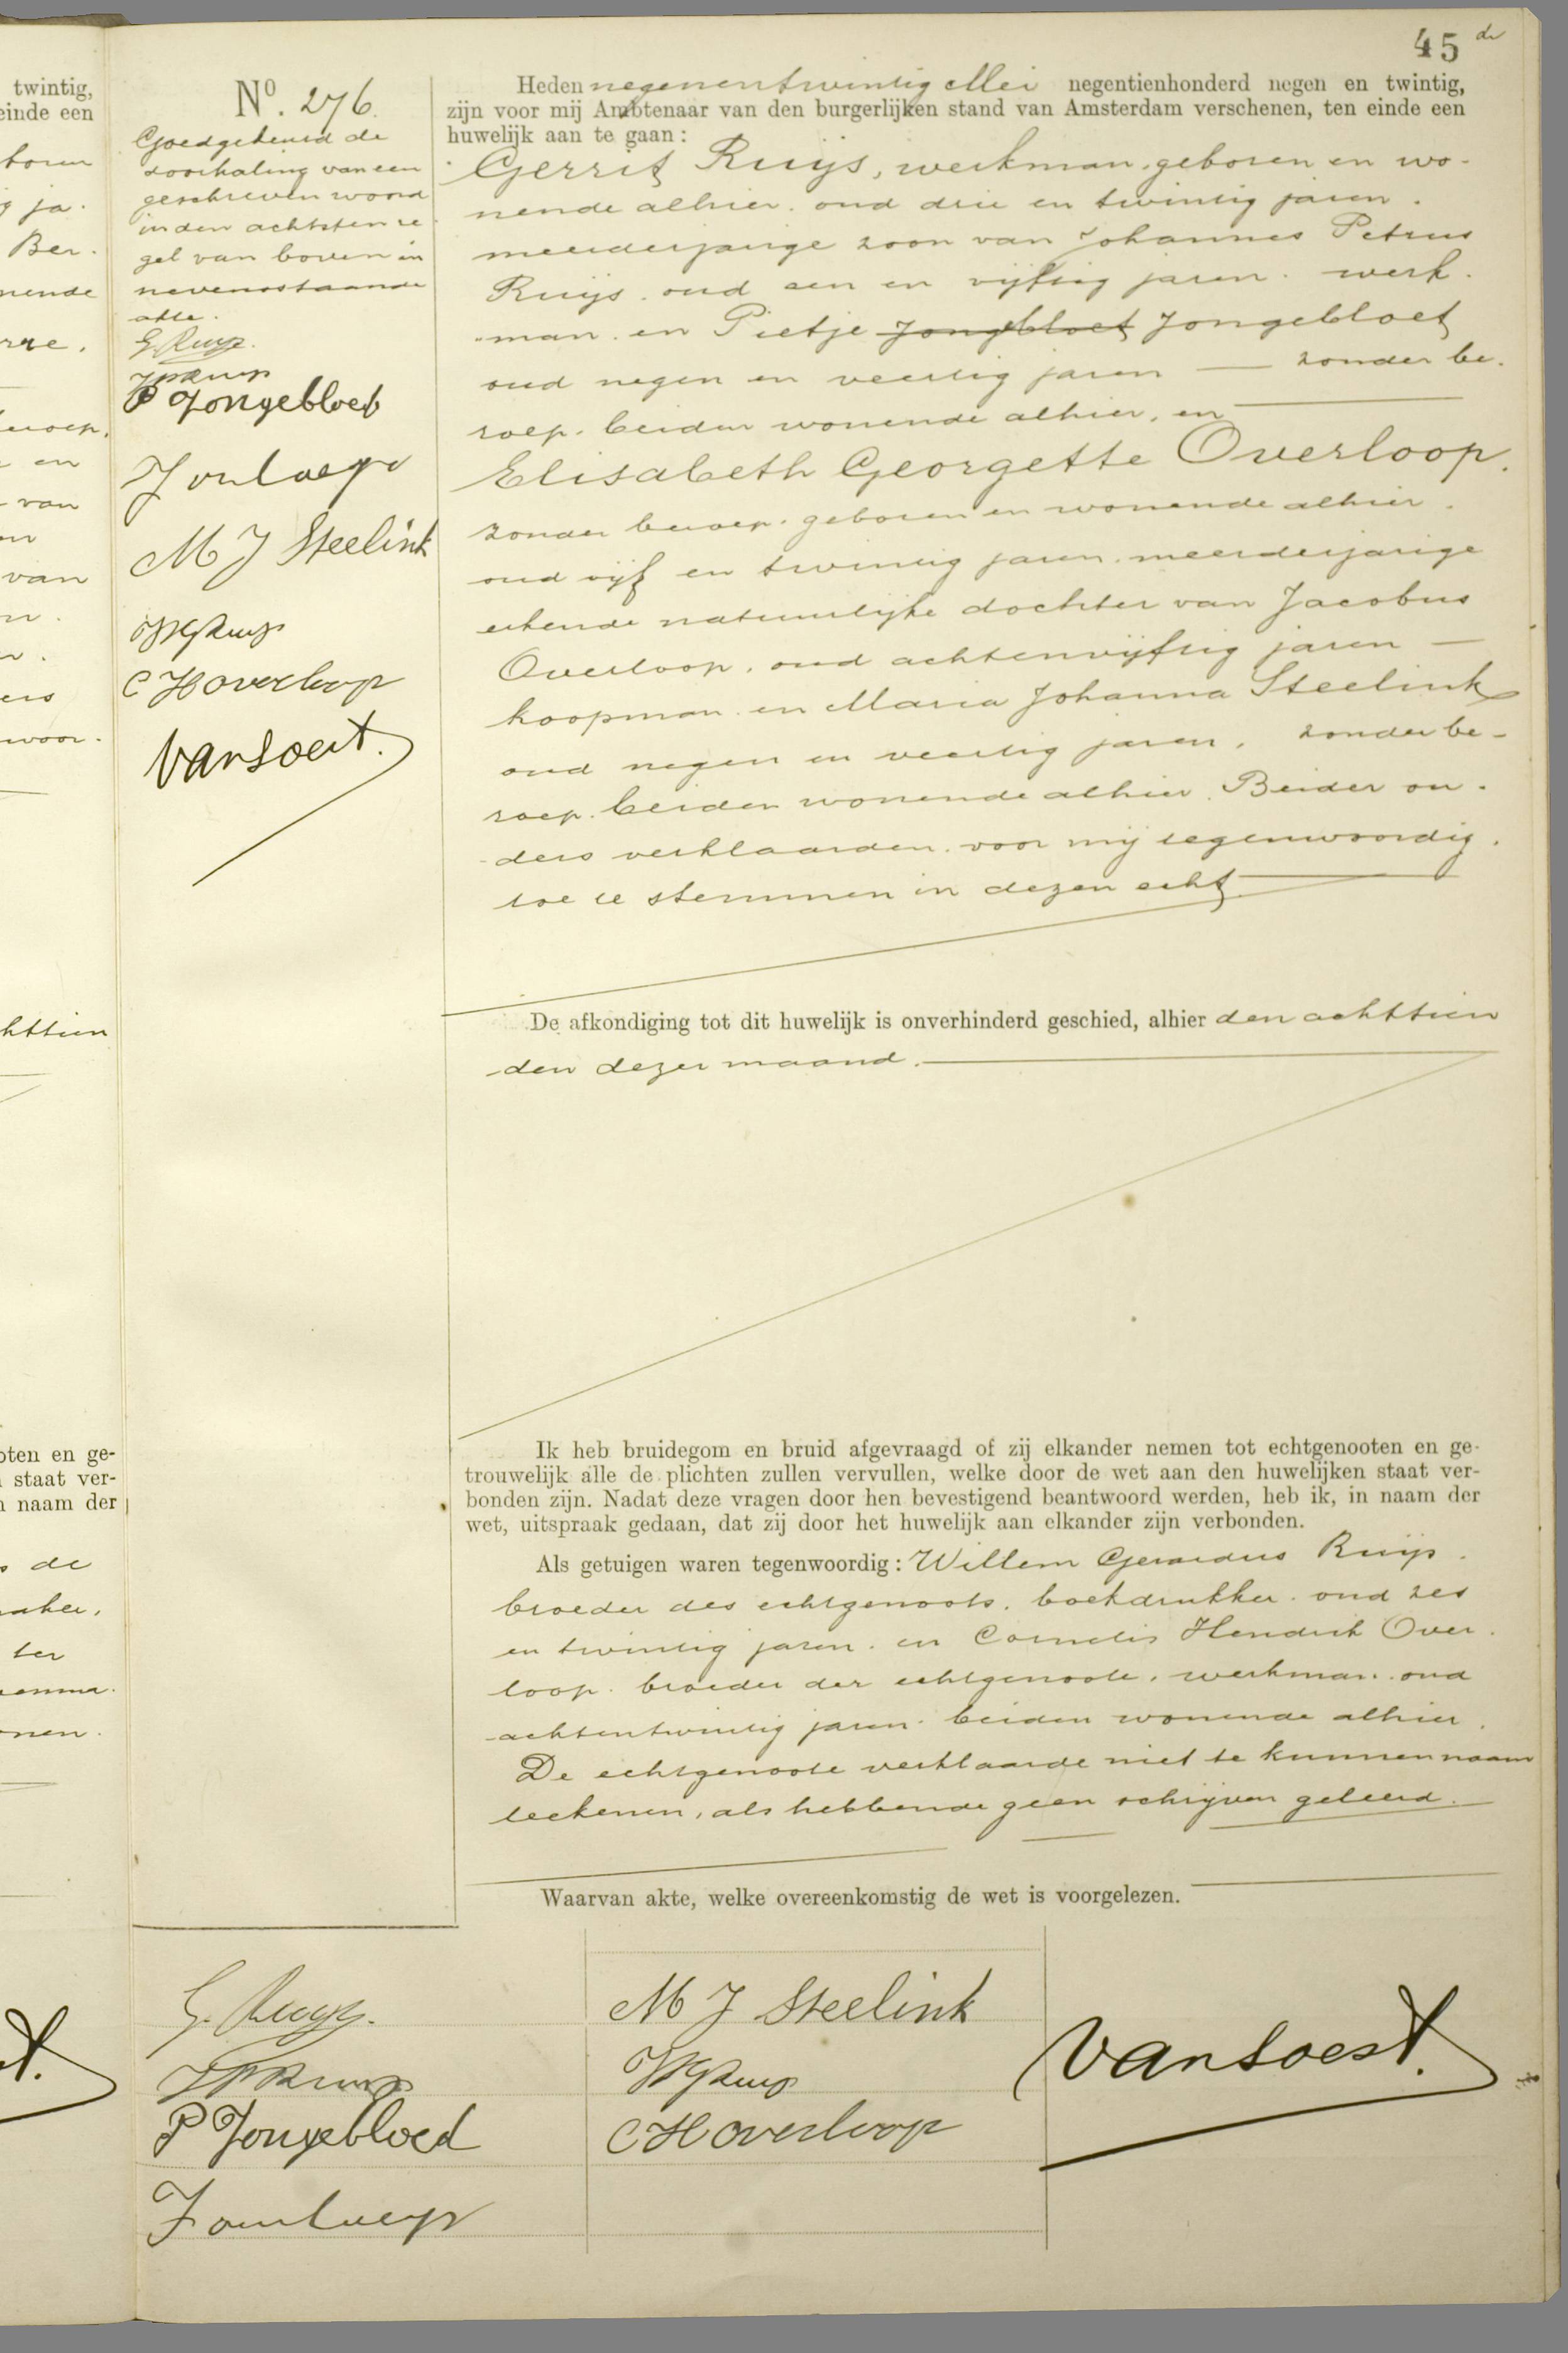 45 de
twintig,
einde een
boren
g ja.
Ber.
nende
rre.
beroep.
en
van
van
ers
woor.
chttien
oten en ge-
staat ver-
n naam der
de
maker,
ter
nen.
No. 276.
Goedgekeurd de
doorhaling van een
geschreven woord
in den achtsten re
gel van boven in
nevenstaande
akte.
G. Ruijs.
JP Ruijs
P Jongebloed
J Overloop
M J Steelink
W G Ruijs
C H Overloop
Van Soest.
Heden negenentwintig Mei negentienhonderd negen en twintig,
zijn voor mij Ambtenaar van den burgerlijken stand van Amsterdam verschenen, ten einde een
huwelijk aan te gaan:
Gerrit Ruijs, werkman, geboren en wo-
nende alhier, oud drie en twintig jaren,
meerderjarige zoon van Johannes Petrus
Ruijs, oud een en vijftig jaren, werk-
man, en Pietje Jongbloet Jongebloet
oud negen en veertig jaren — zonder be-
roep, beiden wonende alhier, en
Elisabeth Georgette Overloop,
zonder beroep, geboren en wonende alhier,
oud vijf en twintig jaren, meerderjarige
erkende natuurlijke dochter van Jacobus
Overloop, oud achtenvijftig jaren —
koopman, en Maria Johanna Steelink
oud negen en veertig jaren, zonder be-
roep, beiden wonende alhier. Beider ou-
ders verklaarden, voor mij tegenwoordig,
toe te stemmen in dezen echt.
De afkondiging tot dit huwelijk is onverhinderd geschied, alhier den achttien
den dezer maand.
Ik heb bruidegom en bruid afgevraagd of zij elkander nemen tot echtgenooten en ge-
trouwelijk alle de plichten zullen vervullen, welke door de wet aan den huwelijken staat ver-
bonden zijn. Nadat deze vragen door hen bevestigend beantwoord werden, heb ik, in naam der
wet, uitspraak gedaan, dat zij door het huwelijk aan elkander zijn verbonden.
Als getuigen waren tegenwoordig: Willem Gerardus Ruijs,
broeder des echtgenoots, boekdrukker, oud zes
en twintig jaren, en Cornelis Hendrik Over-
loop, broeder der echtgenoote, werkman, oud
achtentwintig jaren, beiden wonende alhier.
De echtgenoote verklaarde niet te kunnen naam
teekenen, als hebbende geen schrijven geleerd.
Waarvan akte, welke overeenkomstig de wet is voorgelezen.
G. Ruijs.
JP Ruijs
P Jongebloed
J Overloop
M J Steelink
W G Ruijs
C H Overloop
Van Soest.